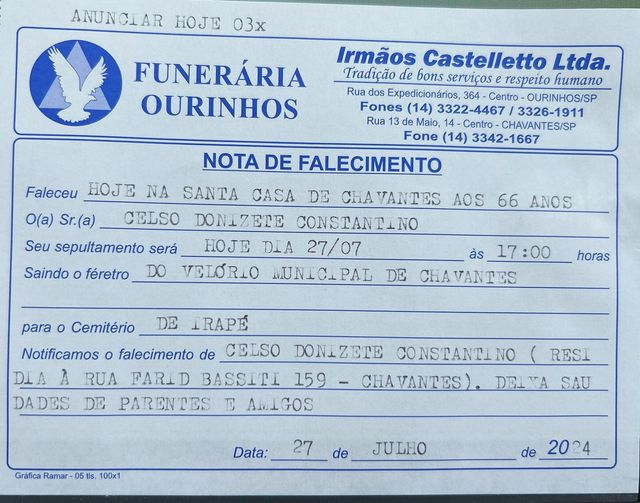 ANUNCIAR HOJE 03x
FUNERÁRIA
OURINHOS
Irmãos Castelletto Ltda.
Tradição de bons serviços e respeito humano
Rua dos Expedicionários, 364 - Centro - OURINHOS/SP
Fones (14) 3322-4467 / 3326-1911
Rua 13 de Maio, 14 - Centro - CHAVANTES/SP
Fone (14) 3342-1667
NOTA DE FALECIMENTO
Faleceu HOJE NA SANTA CASA DE CHAVANTES AOS 66 ANOS
O(a) Sr.(a) CELSO DONIZETE CONSTANTINO
Seu sepultamento será HOJE DIA 27/07 às 17:00 horas
Saindo o féretro DO VELÓRIO MUNICIPAL DE CHAVANTES
para o Cemitério DE IRAPÉ
Notificamos o falecimento de CELSO DONIZETE CONSTANTINO ( RESI
DIA À RUA FARID BASSITI 159 - CHAVANTES). DEIXA SAU
DADES DE PARENTES E AMIGOS
Data: 27 de JULHO de 2024
Gráfica Ramar - 05 tls. 100x1